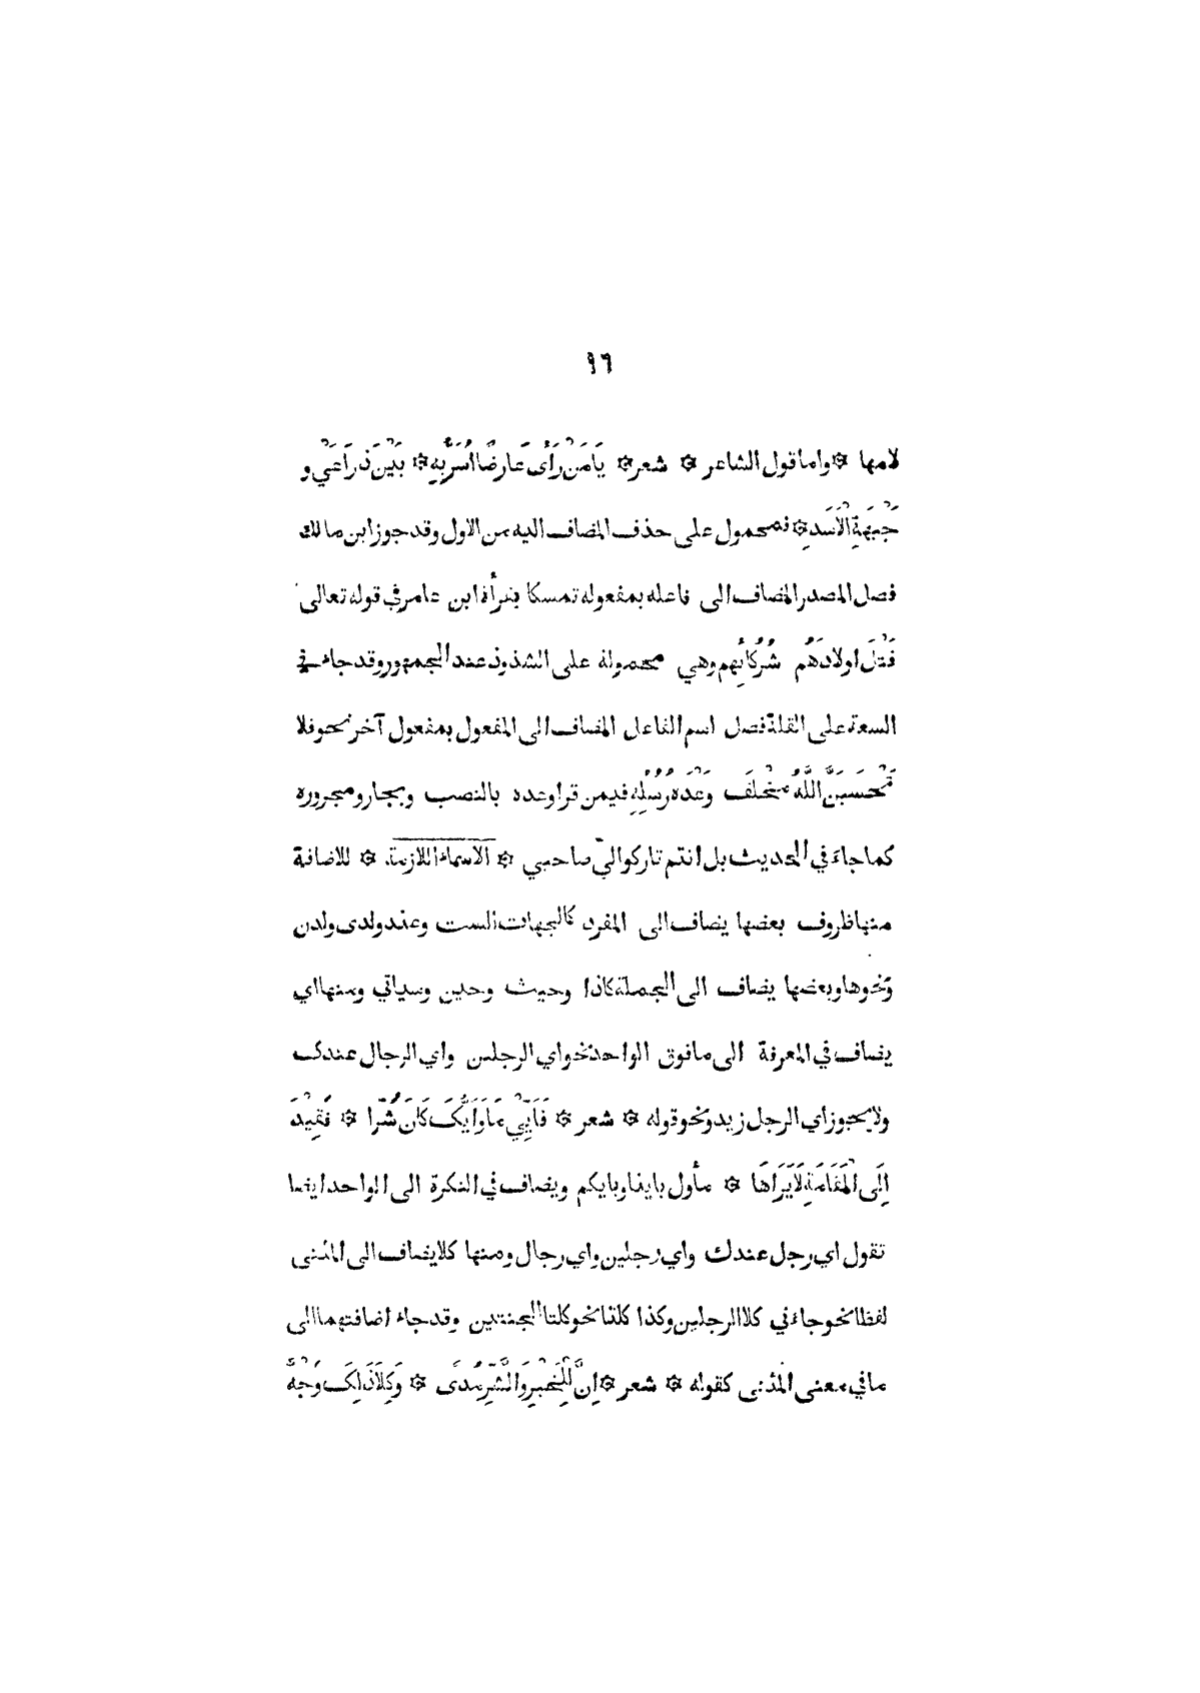 ٩٦
لامها ۞ واما قول الشاعر ۞ شعر ۞ يَا مَنْ رَأَى عَارِضًا اُسَرُّ بِهِ ۞ بَيْنَ ذِرَاعَيْ و
جَبْهَةِ الْاَسَدِ ۞ فمحمول على حذف المضاف اليه من الاول وقد جوز ابن مالك
فصل المصدر المضاف الى فاعله بمفعوله تمسكا بقرأة ابن عامر في قوله تعالى
قَتْلَ اولادَهُم شُرَكائِهم وهي محمولة على الشذوذ عند الجمهور وقد جاء في
السعة على القلة فصل اسم الفاعل المضاف الى المفعول بمفعول آخر نحو فلا
تَحْسَبَنَّ اللَّهَ مخْلفَ وَعْدَهُ رُسُلِهِ فيمن قرا وعده بالنصب وبجار ومجروره
كما جاءَ في الحديث بل انتم تاركوا لي صاحبي ۞ الاسماء اللازمة ۞ للاضافة
منها ظروف بعضها يضاف الى المفرد كالجهات الست وعند ولدى ولدن
ونحوها وبعضها يضاف الى الجملة كاذا وحيث وحين وسياتي ومنها اي
يضاف في المعرفة الى ما فوق الواحد نحو اي الرجلين واي الرجال عندك
ولا يجوز اي الرجل زيد ونحو قوله ۞ شعر ۞ فَاَيِّيْ مَا وَاَيُّكَ كَانَ شَرّا ۞ فَقِيْدَ
اِلَى الْمَقَامَةِ لَايَرَاهَا ۞ مأول باينا وبايكم ويضاف في النكرة الى الواحد ايضا
تقول اي رجل عندك واي رجلين واي رجال ومنها كلا يضاف الى المثنى
لفظا نحو جاءني كلا الرجلين وكذا كلتا نحو كلتا الجنتين وقد جاء اضافتهما الى
ما في معنى المثنى كقوله ۞ شعر ۞ اِنَّ لِلْخَيْرِ وَالشَّرِّ مَدَى ۞ وَكِلَا ذَلِكَ وَجْهٌ